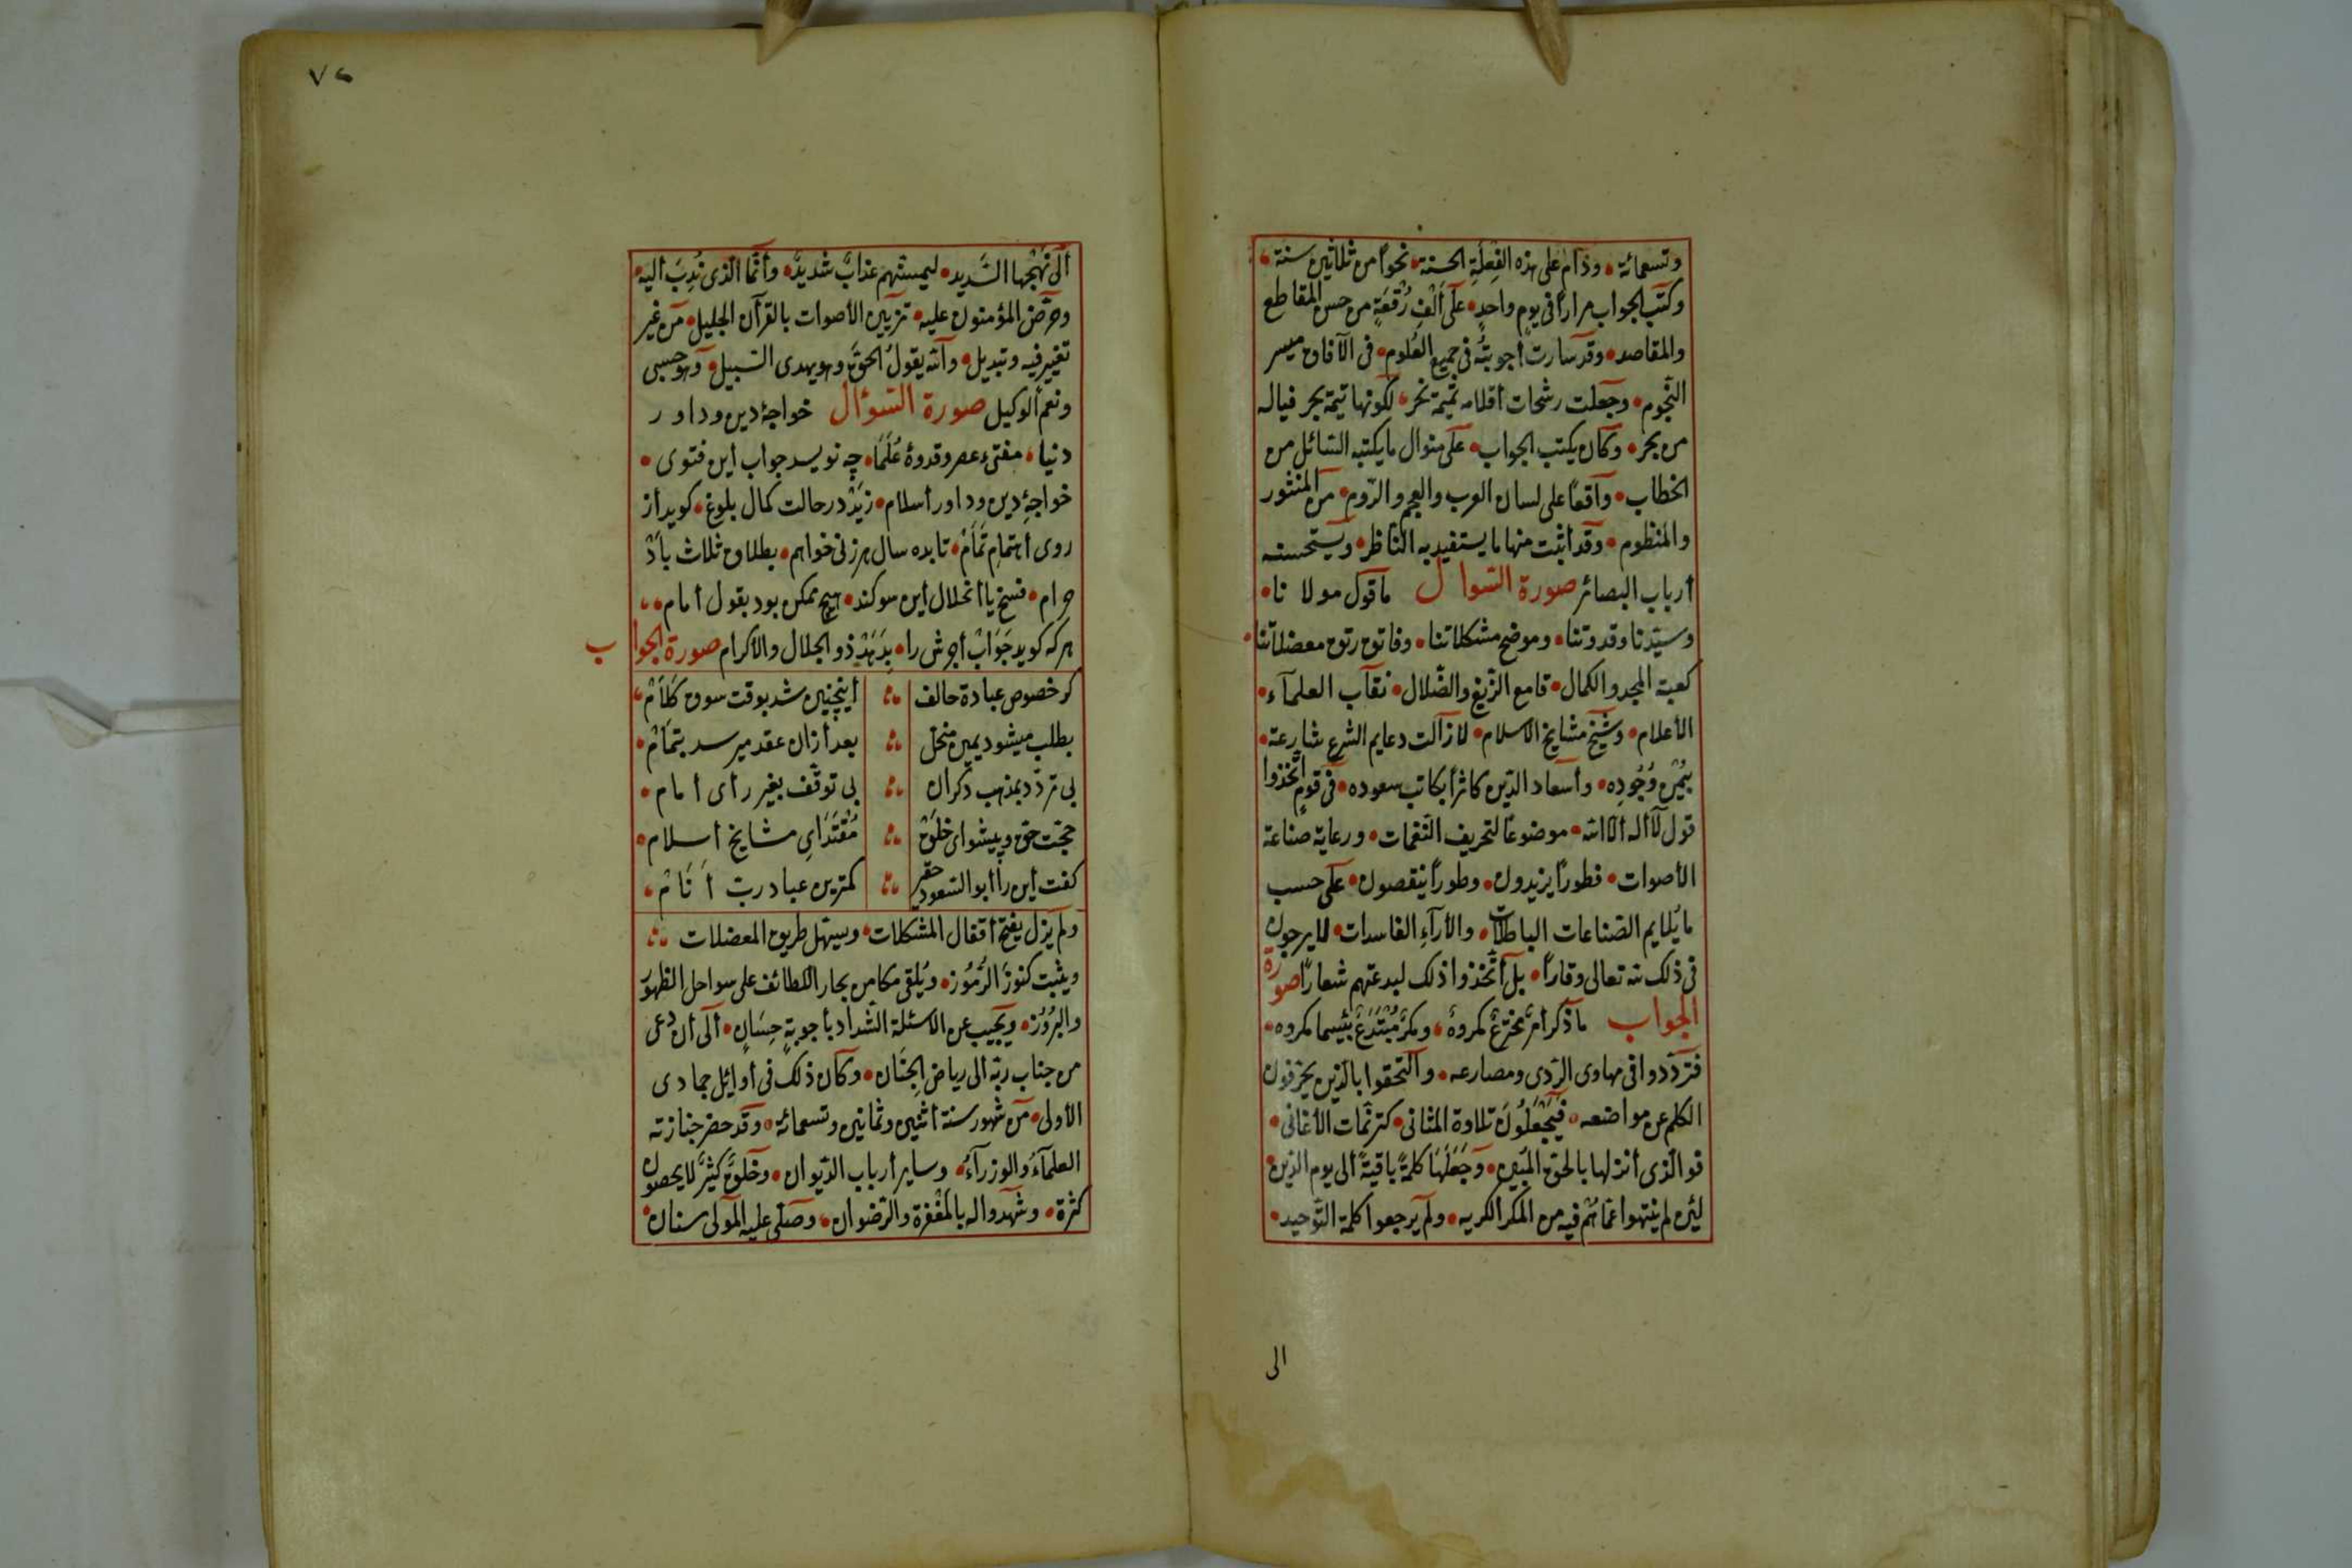 وتسعمائة • ودام على هذه الفعلة الحسنة • نحواً من ثلاثين سنة •
وكتب الجواب مراراً فى يوم واحد • على ألف رقعة من حسن المقاطع
والمقاصد • وقد سارت أجوبته فى جميع العلوم • فى الآفاق مسير
النجوم • وجعلت رشحات أقلامه تميمة نحر • لكونها يتيمة بحر فياله
من بحر • وكان يكتب الجواب • على منوال ما يكتبه السائل من
الخطاب • واقعاً على لسان العرب والعجم والروم • من المنثور
والمنظوم • وقد أثبت منها ما يستفيد به الناظر • ويستحسنه
أرباب البصائر صورة السوال ما قول مولانا •
وسيدنا وقدوتنا • وموضح مشكلاتنا • وفاتق رتق معضلاتنا •
كعبة المجد والكمال • قامع الزيغ والضلال • نقاب العلماء •
الأعلام • وشيخ مشايخ الاسلام • لا زالت دعايم الشرع شارعة •
بيمن وجوده • وأسعاد الدين كاثراً بكاتب سعوده • فى قوم اتخذوا
قول لا أله ألا الله • موضوعاً لتحريف النغمات • ورعاية صناعة
الأصوات • فطوراً يزيدون • وطوراً ينقصون • على حسب
ما يلايم الصناعات الباطلات • والأراء الفاسدات • لا يرجون
فى ذلك لله تعالى وقاراً • بل أتخذوا ذلك لبدعتهم شعاراً صورة
الجواب ما ذكر أمر مخترع مكروه • ومكر مبتدع بئسما مكروه •
فتردوا فى مهاوى الردى ومصارعه • والتحقوا بالذين يحرفون
الكلم عن مواضعه • فيجعلون تلاوة المثانى • كترنمات الأغانى •
فو الذى أنزلها بالحق المبين • وجعلها كلمة باقية ألى يوم الدين •
لئن لم ينتهوا عما هم فيه من المكر الكريه • ولم يرجعوا كلمة التوحيد •
الى
٧٢
ألى نهجها السديد • ليمسنهم عذاب شديد • وأنما الذى ندب أليه •
وحرض المؤمنون عليه • تزيين الأصوات بالقرآن الجليل • من غير
تغيير فيه وتبديل • والله يقول الحق وهو يهدى السبيل • وهو حسبى
ونعم ألوكيل صورة السؤال خواجۀ دين وداور
دنيا • مفتىء عصر وقدوۀ علما • چه نويسد جواب أين فتوى •
خواجۀ دين وداور أسلام • زيد در حالت كمال بلوغ • كويد أز
روى أهتمام تمام • تا بده سال هر زنى خواهم • بطلاق ثلاث باد
حرام • فسخ يا أنحلال أين سوكند • هيچ ممكن بود بقول أمام •
هركه كويد جواب أجرش را • بدهد ذو الجلال والاكرام صورة الجواب
كر خصوص عبادة حالف أينچنين شد بوقت سوق كلام •
بطلب ميشود يمين منحل بعد أزان عقد ميرسد بتمام •
بى تردد بمذهب دكران بى توقف بغير رأى أمام •
حجت حق وپيشواى خلق مقتداى مشايخ أسلام •
كفت أين را أبو السعود حقير كمترين عباد رب أنام •
ولم يزل يفتح أقفال المشكلات • ويسهل طريق المعضلات
ويثبت كنوز الرموز • ويلقى مكامن بحار اللطائف على سواحل الظهور
والبروز • ويجيب عن الاسئلة الشداد بأجوبة حسان • ألى أن دعى
من جناب ربه ألى رياض الجنان • وكان ذلك فى أوائل جمادى
الأولى • من شهور سنة أثنين وثمانين وتسعمائة • وقد حضر جنازته
العلماء والوزراء • وساير أرباب الديوان • وخلق كثير لا يحصون
كثرة • وشهدوا له بالمغفرة والرضوان • وصلى عليه المولى سنان •